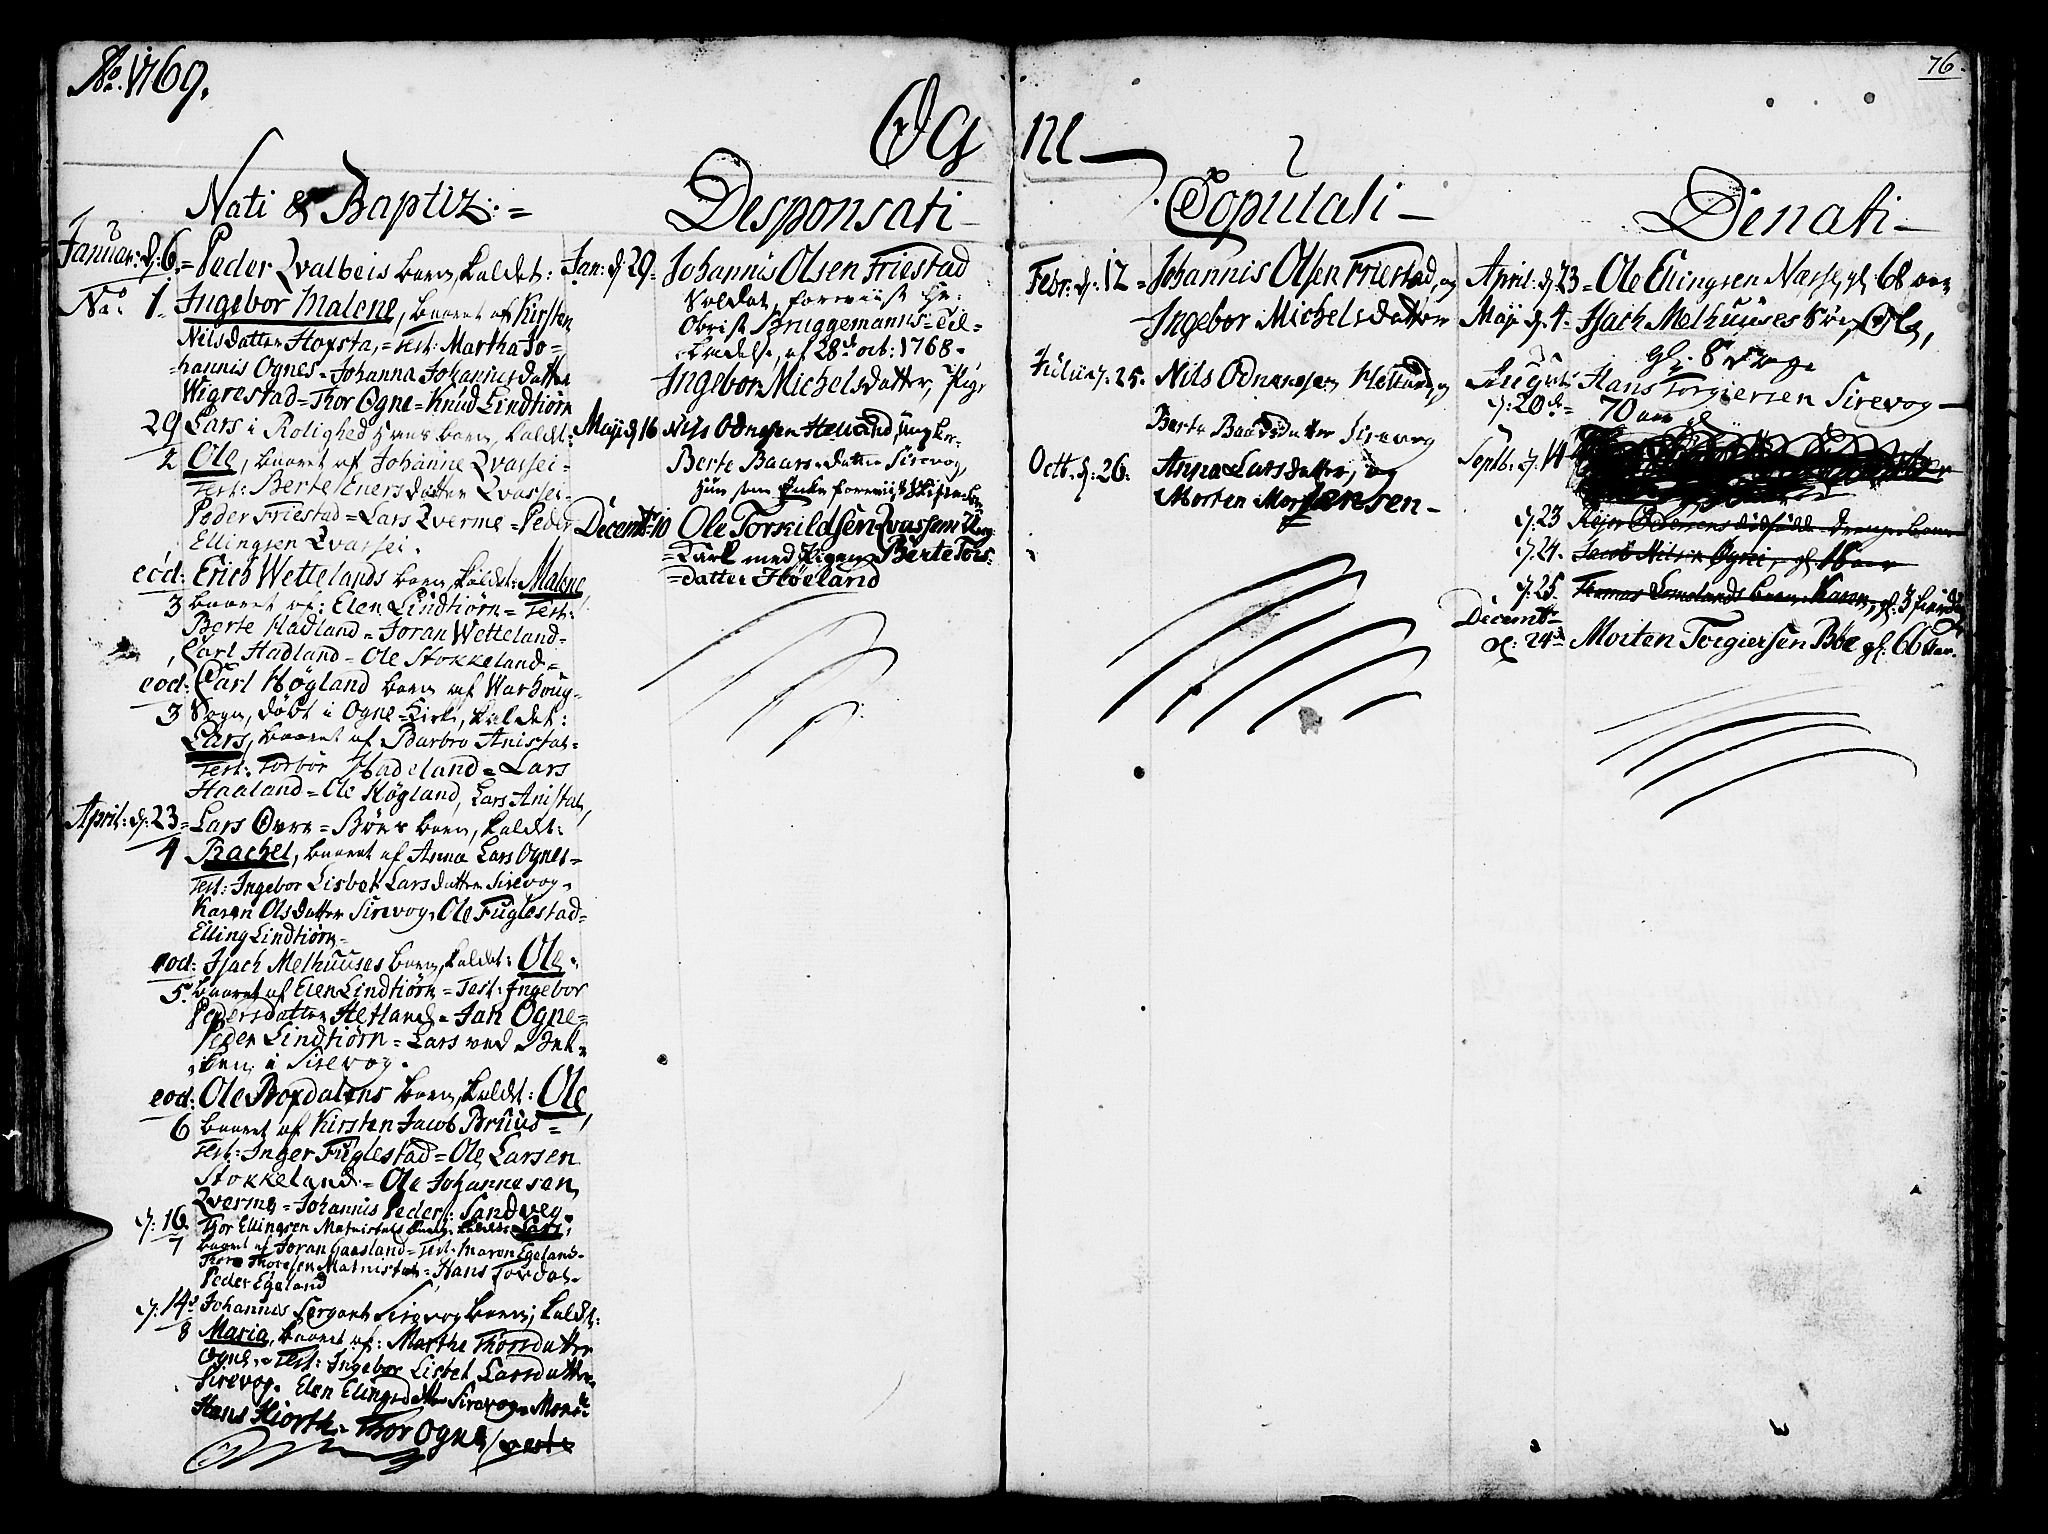 Ao. 1769.
76.
Ogne
Nati & Baptiz: =
Januar: d: 6. = Peder Qvalbeis barn, kaldet:
No. 1. Ingebor Malene, baaret af Kirsten
Nilsdatter Hopsta, = Test: Martha Jo=
hannis Ognes - Johanna Johannisdatter
Wigrestad = Thor Ogne = Knud Lindtiørn
29 Lars i Rolighed barn, kaldt:
2 Ole, baaret af Johanne Qvassei=
Test: Berte Enersdatter Qvassei -
Peder Friestad = Lars Qverme = Peder
Ellingsen Qvassei.
eod: Erich Wettelands barn, kaldet: Malene
3 baaret af: Elen Lindtiørn = Test:
Berte Hadland = Joran Wetteland =
Carl Hadland - Ole Stokkeland =
eod: Carl Høgland barn af Warhoug=
3 Sogn, døbt i Ogne = Kirke, kaldet:
Lars, baaret af Barbro Anistad =
Test: Torbor Hadeland = Lars
Haaland = Ole Høgland, Lars Anistad,
April: d: 23 = Lars Øvre = Bøes barn, kaldt:
4 Rachel, baaret af Anna Lars Ognes =
Test: Ingebor Lisbet Larsdatter Sirevog,
Karen Olsdatter Sirevog, Ole Fuglestad =
Elling Lindtiørn =
eod: Isach Melhuuses barn, kaldet: Ole -
5. baaret af Elen Lindtiørn = Test: Ingebor
Pedersdatter Hetland - Jan Ogne =
Peder Lindtiørn = Lars ved Bek=
ken i Sirevog.
eod: Ole Brofdalens barn, kaldet: Ole
6 baaret af Kirsten Jacob Bruus =
Test: Inger Fuglestad = Ole Larsen
Stokkeland = Ole Johannesen
Qverme = Johannis Peders: Sandveg
d: 16. Thor Ellingsen barn, kaldet: Lars,
7 baaret af Joran Gaasland = Test: Maron Egeland -
Thore Thoresen = Hans Tordal -
Peder Egeland
d: 14 Johannes Sergant Sirevog barn, kaldt:
8 Maria, baaret af: Marthe Thorsdatter
Ogne, = Test: Ingebor Lisbet Larsdatter
Sirevog, Elen Elingsdatter Sirevog, Mons:
Hans Hiorth - Thor Ogne
Desponsati -
Jan: d 29 = Johannis Olsen Friestad
Soldat, foreviist Hr:
Obrist Bruggemanns = Til=
ladelse, af 28de oct: 1768 =
Ingebor Michelsdatter, Pige
Maji d 16 Nils Odnesen Helland, ungkar -
Berte Baarsdatter Sirevog,
hun som Enke foreviist Skiftebrev
Decemb: 10 Ole Torkildsen Qvassem Ung=
= Karl med Pigen Berte Tors=
= datter Høeland
Copulati -
Febr: d: 12 = Johannis Olsen Friestad, og
Ingebor Michelsdatter
Julii d: 25. Nils Odnesen Helland, og
Berte Baardsdatter Sirevog
Octb. d: 26. Anna Larsdatter, og
Morten Mortensen -
Denati -
April: d: 23 = Ole Ellingsen Næsse, gl: 68 aar
Maji d. 4. Isach Melhuuses Søn, Ole,
gl: 8 Dage.
Augusti Hans Torgiersen Sirevog -
d: 20de = 70 aar
Septb. d. 14
d. 23 Reier Pedersens dødfødde drenge barn
d: 24. Jacob Nilsen Ogne, gl 16 aar
d: 25. Thomas barn Karen, gl. 3
Decemb:
d: 24de Morten Torgiersen Bøe gl: 66 aar.